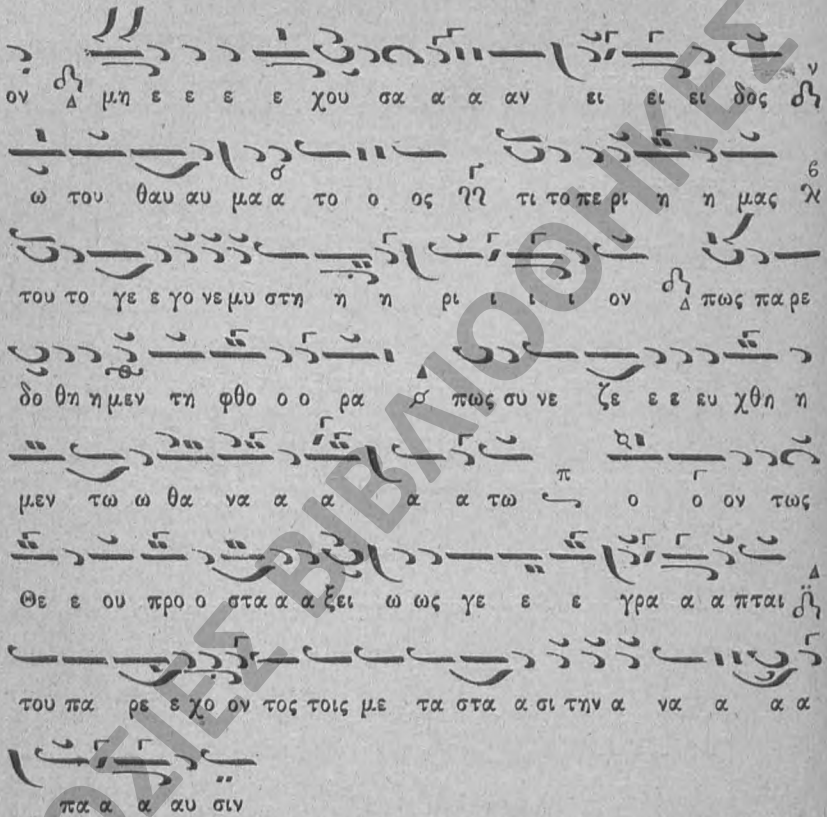 ον Δ μη ε ε ε ε χου σα α α αν ει ει ει δος ν
ω του θαυ αυ μα α το ο ος τι το πε ρι η η μας
του το γε ε γο νε μυ στη η η ρι ι ι ι ον Δ πως πα ρε
δο θη η μεν τη φθο ο ο ρα Δ πως συ νε ζε ε ε ευ χθη η
μεν τω ω θα να α α α α τω π ο ο ον τως
Θε ε ου προ ο στα α α ξει ω ως γε ε ε γρα α α πται Δ
του πα ρε ε χο ον τος τοις με τα στα α σι την α να α α α
πα α α αυ σιν
ΟΣΙΕΣ ΒΙΒΛΙΟΘΗΚΕΣ